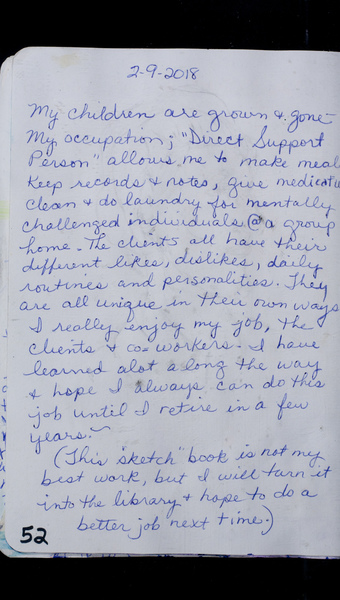 2-9-2018
My children are grown & gone-
My occupation; "Direct Support
Person" allows me to make meal
Keep records & notes, give medicati
clean & do laundry for mentally
challenged individuals @ a group
home. The clients all have their
different likes, dislikes, daily
routines and personalities. They
are all unique in their own ways
I really enjoy my job, the
clients & co-workers. I have
learned alot along the way
& hope I always can do this
job until I retire in a few
years.~
(This sketch" book is not my
best work, but I will turn it
into the library & hope to do a
better job next time.)
52